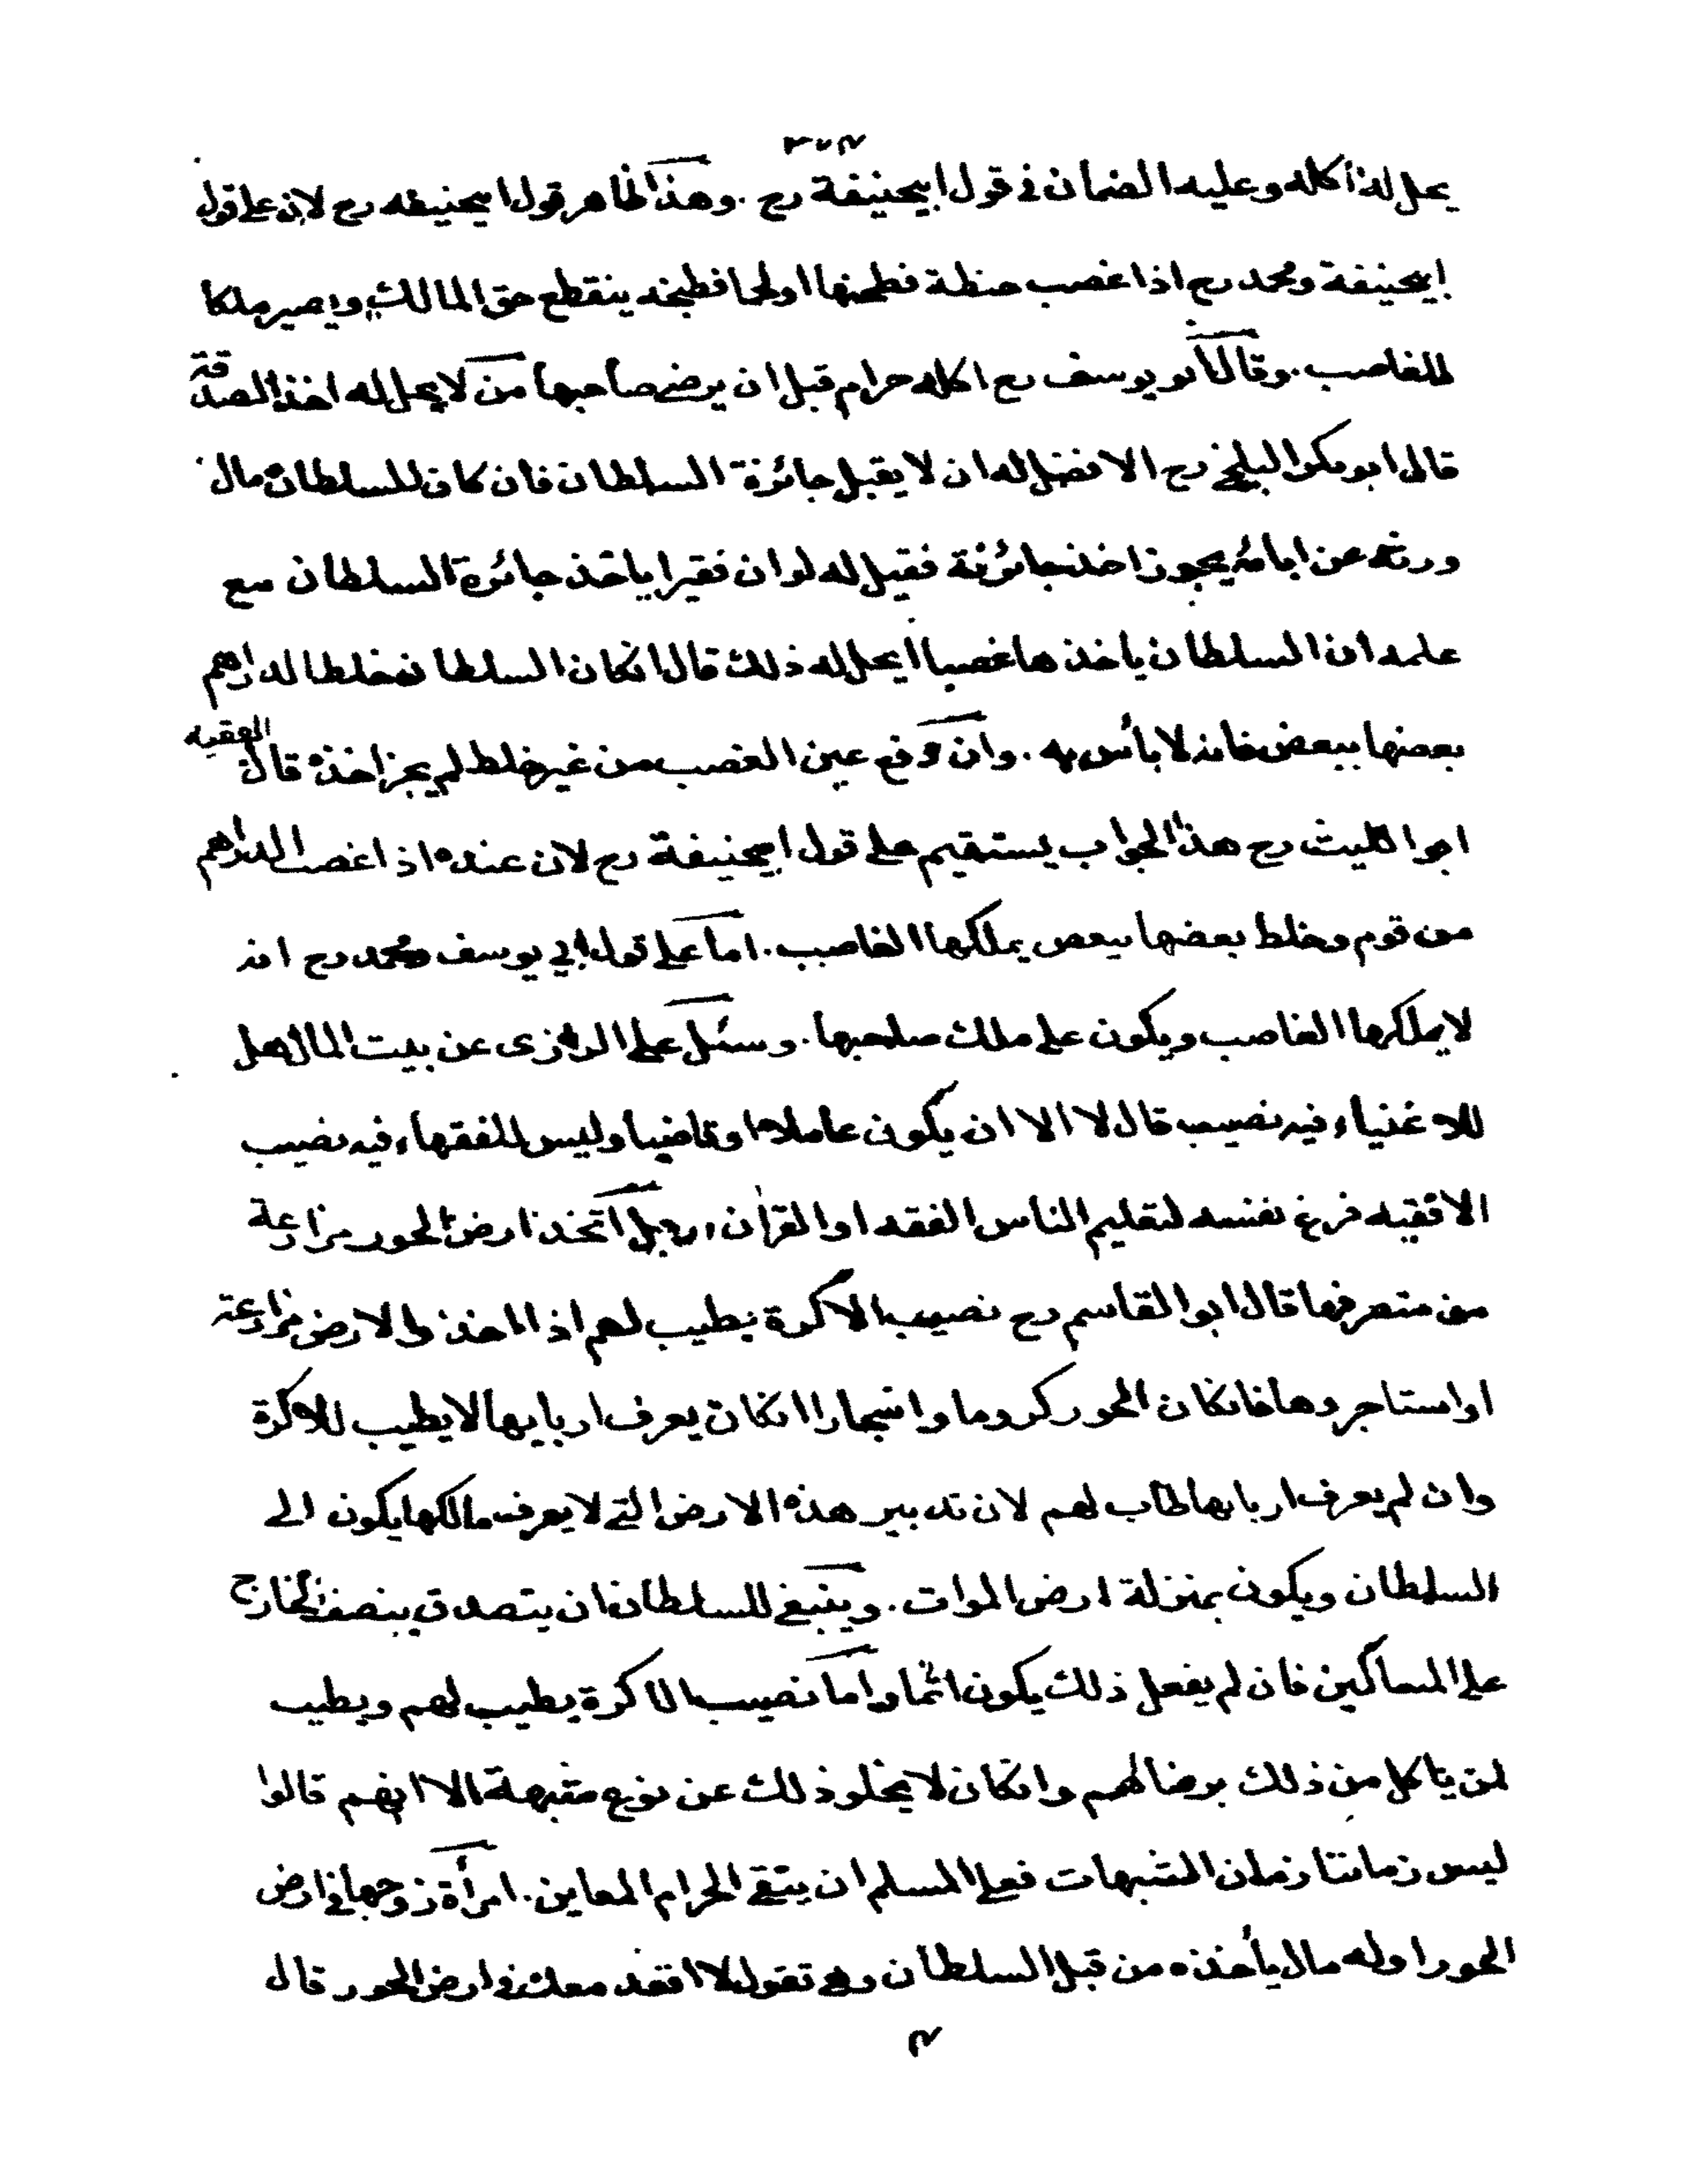 يحل له اكله وعليه الضمان في قول ابيحنيفة رح . وهذا ظاهر قول ابيحنيفه رح لان على قول
ابيحنيفة ومحمد رح اذا غصب حنطة فطحنها اولحما فطبخه ينقطع حق المالك ويصير ملكا
للغاصب . وقال ابو يوسف رح اكله حرام قبل ان يرضى صاحبها من لا يحل له اخذ الصدقة
قال ابو بكر البلخي رح الافضل له ان لا يقبل جائزة السلطان فان كان للسلطان مال
ورثه عن ابائه يجوز اخذ جائزته فقيل له لو ان فقيرا ياخذ جائزة السلطان مع
علمه ان السلطان ياخذها غصبا ايحل له ذلك قال انكان السلطان خلط الدراهم
بعضها ببعض فانه لا بأس به . وان دفع عين الغصب من غير خلط لم يجز اخذه قال الفقيه
ابو الليث رح هذا الجواب يستقيم على قول ابيحنيفة رح لان عنده اذا غصب الدراهم
من قوم وخلط بعضها ببعض يملكها الغاصب . اما على قول ابي يوسف ومحمد رح انه
لا يملكها الغاصب ويكون على ملك صاحبها . وسئل علي الرازى عن بيت المال هل
للاغنياء فيه نصيب قال لا الا ان يكون عاملا او قاضيا وليس للفقهاء فيه نصيب
الا فقيه فرغ نفسه لتعليم الناس الفقه او القران ، رجل اتخذ ارض الحور مزارعة
من متعرفها قال ابو القاسم رح نصيب الاكرة يطيب لهم اذا اخذوا الارض مزارعة
او استاجروها فانكان الحور كروما واشجارا انكان يعرف اربابها لا يطيب للاكرة
وان لم يعرف اربابها طاب لهم لان تدبير هذه الارض التي لا يعرف مالكها يكون الى
السلطان ويكون بمنزلة ارض الموات . وينبغي للسلطان ان يتصدق بنصف الخارج
على المساكين فان لم يفعل ذلك يكون اثما واما نصيب الاكرة يطيب لهم ويطيب
لمن ياكل من ذلك برضاهم وانكان لا يخلو ذلك عن نوع شبهة الا انهم قالوا
ليس زماننا زمان الشبهات فعلى المسلم ان يتقى الحرام المعاين . امرأة زوجها في ارض
الحور اوله مال يأخذه من قبل السلطان وهى تقول لا اقعد معك في ارض الحور قال